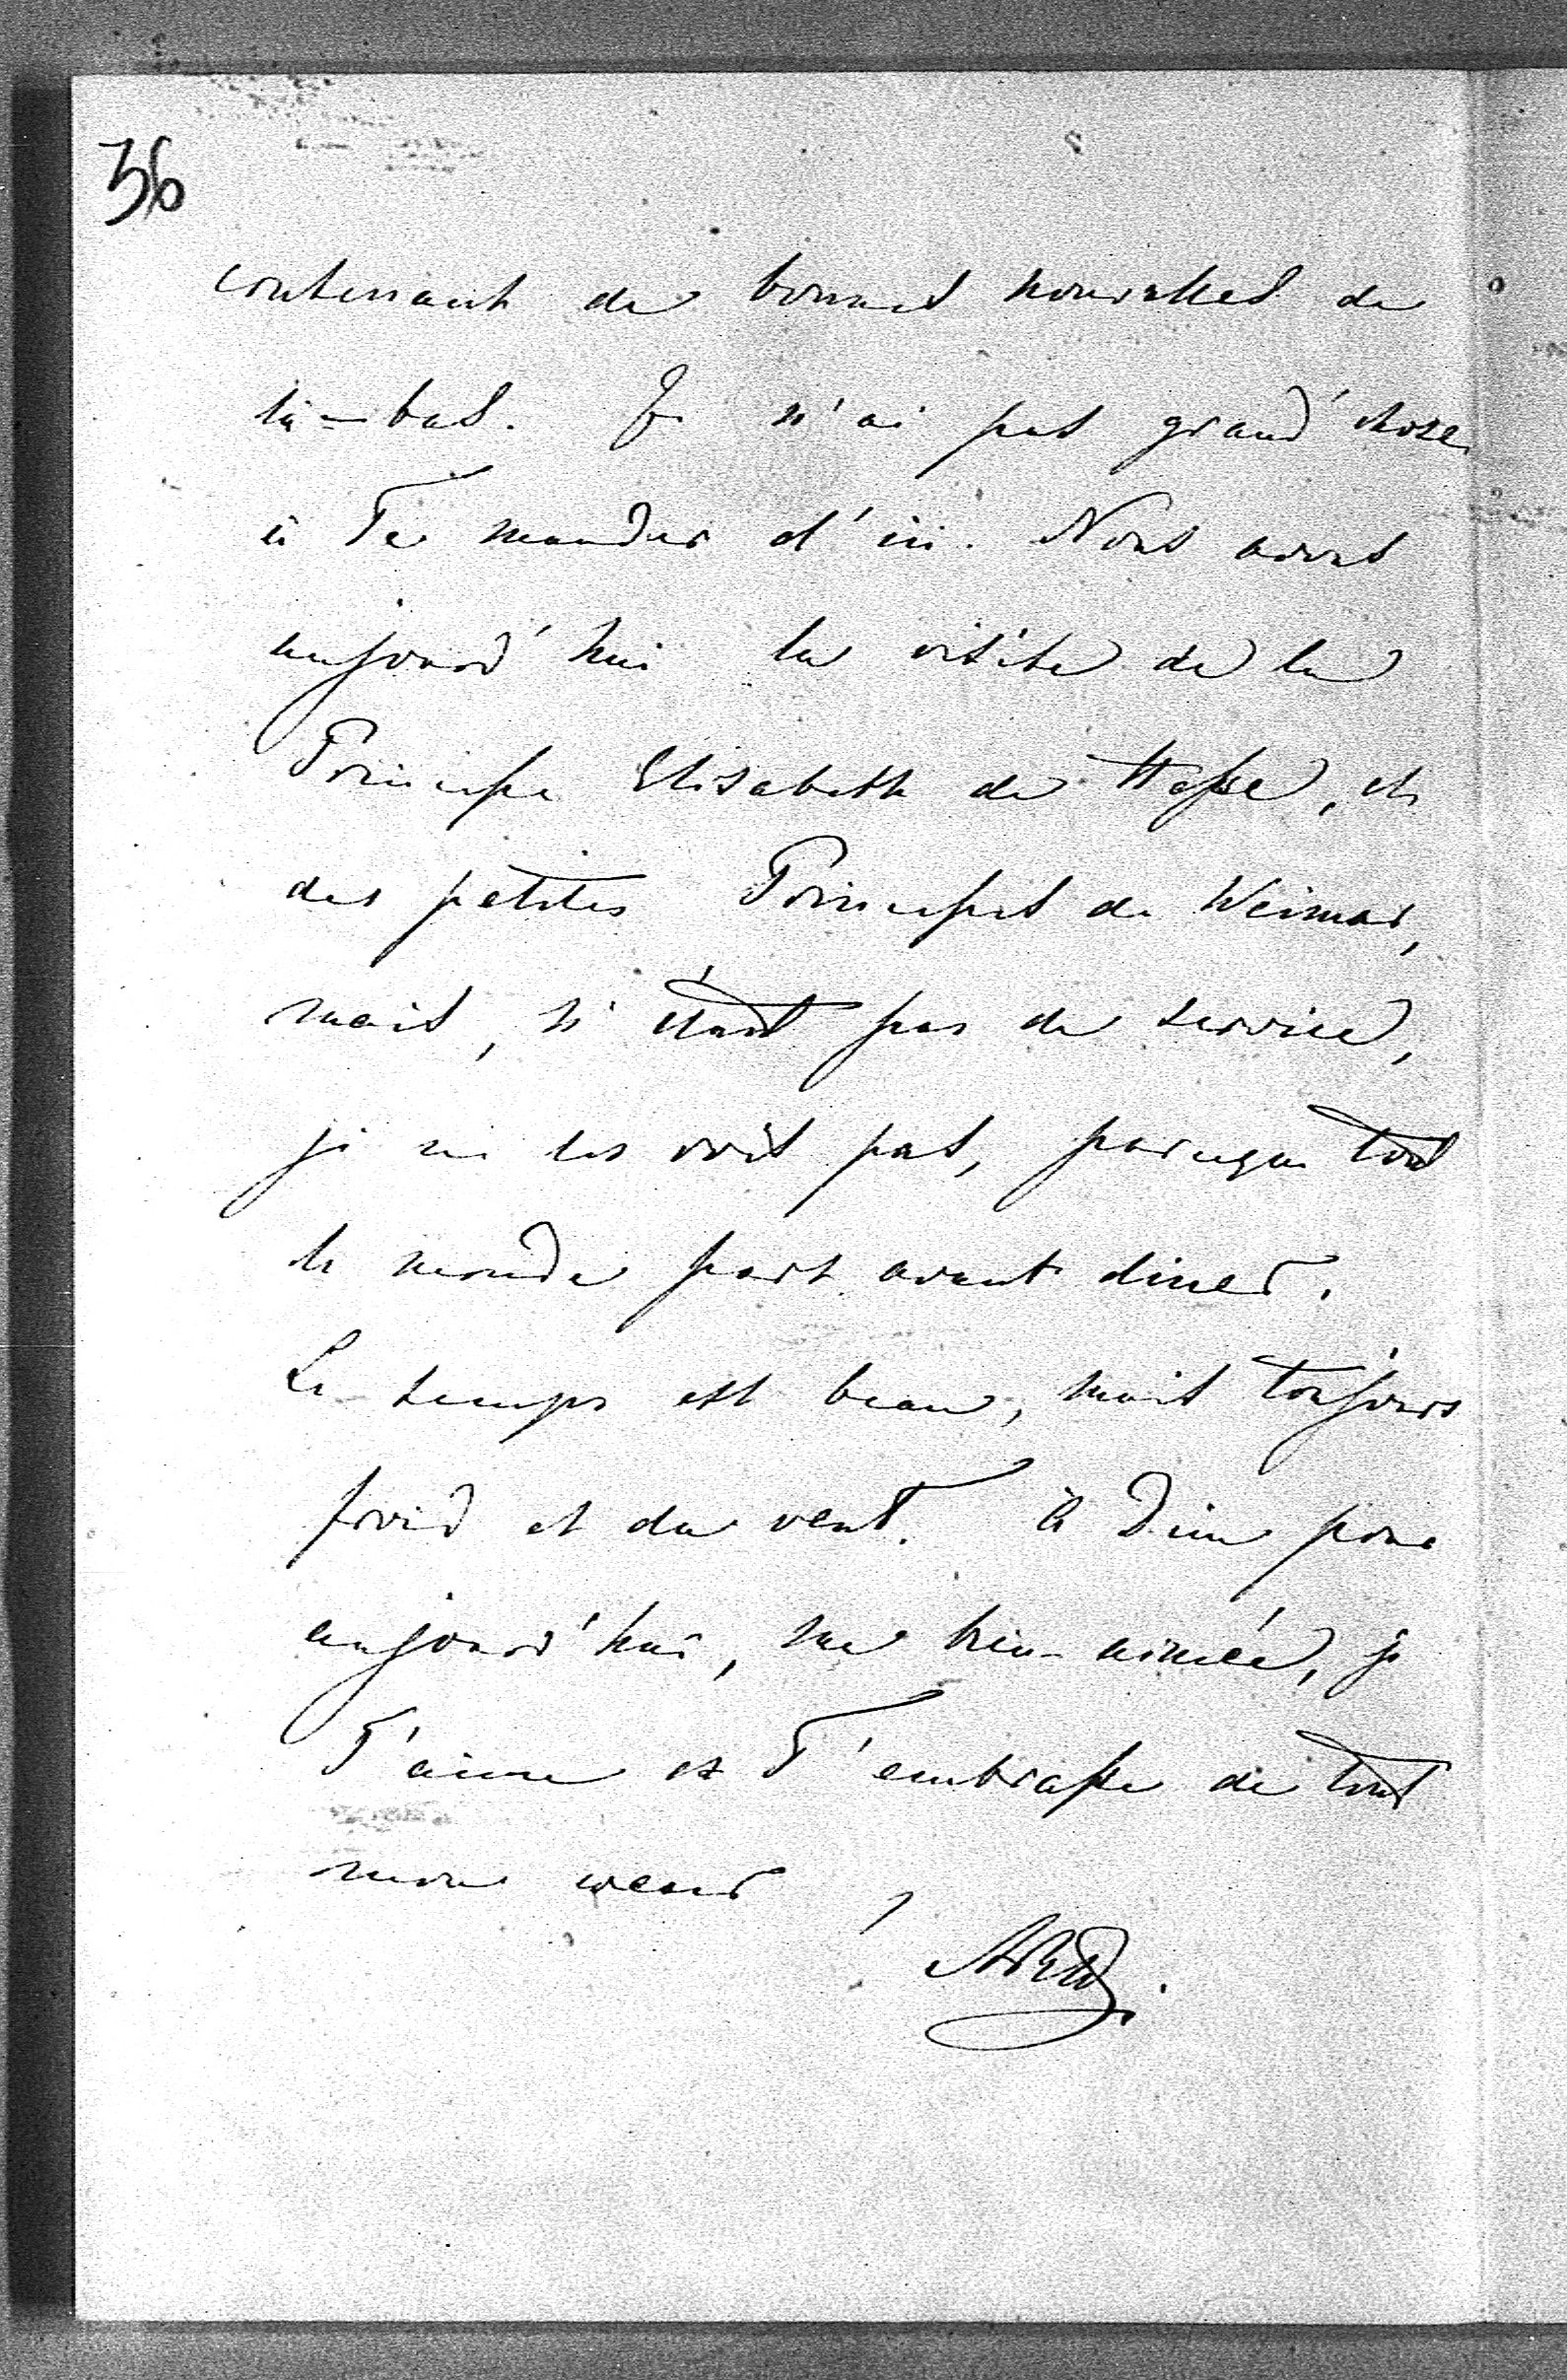 36
contenant de bonnes nouvelles de
là-bas. Je n'ai pas grand'chose
à Te mander d'ici. Nous avons
aujourd'hui la visite de la
Princesse Elisabeth de Hesse, et
des petites Princesses de Weimar,
mais, n'étant pas de service,
je ne les vois pas, parceque tout
le monde part avant diner.
Le temps est beau, mais toujours
froid et du vent. à Dieu pour
aujourd'hui, ma bien-aimée, je
T'aime et T'embrasse de tout
mon coeur